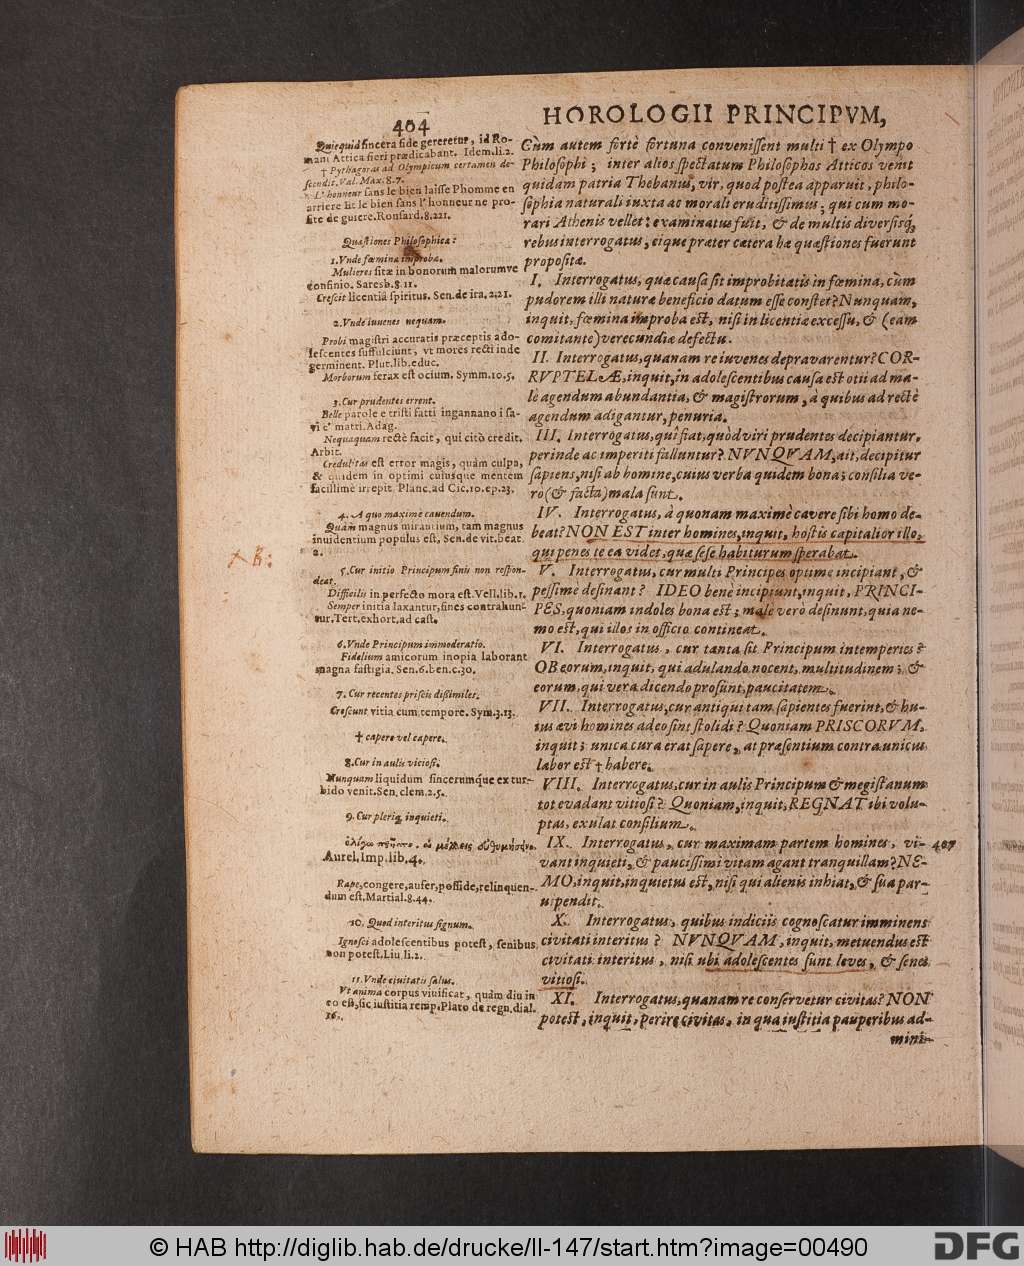 404
HOROLOGII PRINCIPVM,
Quicquid sincera fide gereretur, id Ro-
mani Attica fieri prædicabant. Idem.li.2.
† Pythagoras ad Olympicum certamen de-
scendit. Val. Max. 8.7.
L'honneur sans le bien laisse l'homme en
arriere Et le bien sans l'honneur ne pro-
fite de guiere. Ronsard. 8.221.
Quæstiones Philosophicæ:
1. Vnde fœmina improba.
Mulieres sitæ in bonorum malorumve
confinio. Saresb. 8.11.
Crescit licentiâ spiritus. Sen. de ira. 2.21.
2. Vnde iuuenes nequam.
Probi magistri accuratis præceptis ado-
lescentes suffulciunt, vt mores recti inde
germinent. Plut. lib. educ.
Morborum ferax est ocium. Symm. 10.5.
3. Cur prudentes errent.
Belle parole e tristi fatti ingannano i sa-
vi e' matti. Adag.
Nequaquam rectè facit, qui citò credit.
Arbit.
Credulitas est error magis, quàm culpa,
& quidem in optimi cuiusque mentem
facillimè irrepit. Planc. ad Cic. 10. ep. 23.
4. A quo maxime cauendum.
Quàm magnus mirantium, tam magnus
inuidentium populus est, Sen. de vit. beat.
2.
NB:
5. Cur initio Principum finis non respon-
deat.
Difficilis in perfecto mora est. Vell. lib. 1.
Semper initia laxantur, fines contrahun-
tur. Tert. exhort. ad cast.
6. Vnde Principum immoderatio.
Fidelium amicorum inopia laborant
magna fastigia. Sen. 6. ben. c. 30.
7. Cur recentes priscis dissimiles.
Crescunt vitia cum tempore. Sym. 3.13.
† capere vel capere.
8. Cur in aulis vitiosi.
Nunquam liquidum sincerumque ex tur-
bido venit. Sen. clem. 2.5.
9. Cur plerique inquieti.
Aurel. Imp. lib. 4.
Rape, congere, aufer, posside, relinquen-
dum est. Martial. 8.44.
10. Quod interitus signum.
Ignosci adolescentibus potest, senibus
non potest. Liu. li. 2.
11. Vnde ciuitatis salus.
Vt anima corpus viuificat, quàm diu in
eo est, sic iustitia remp. Plato de regn. dial.
16.
Cùm autem fortè fortuna convenissent multi † ex Olympo
Philosophi; inter alios spectatum Philosophos Atticos venit
quidam patria Thebanus, vir, quod postea apparuit, philo-
sophia naturali iuxta ac morali eruditissimus; qui cum mo-
rari Athenis vellet: examinatus fuit, & de multis diversisq́,
rebus interrogatus, eique præter cætera hæ quæstiones fuerunt
propositæ.
I. Interrogatus, quæ causa sit improbitatis in fœmina, cùm
pudorem illi naturæ beneficio datum esse constet? Nunquam,
inquit, fœmina improba est, nisi in licentiæ excessu, & (eam
comitante) verecundiæ defectu.
II. Interrogatus, quanam re iuvenes depravarentur? COR-
RVPTELÆ, inquit, in adolescentibus causa est otii ad ma-
lè agendum abundantia, & magistrorum, à quibus ad rectè
agendum adigantur, penuria.
III. Interrogatus, quî fiat, quòd viri prudentes decipiantur,
perinde ac imperiti falluntur? NVNQVAM, ait, decipitur
sapiens, nisi ab homine, cuius verba quidem bona; consilia ve-
rò (& facta) mala sunt.
IV. Interrogatus, à quonam maximè cavere sibi homo de-
beat? NON EST inter homines, inquit, hostis capitalior illo,
qui penes te ea videt, quæ sese habiturum sperabat.
V. Interrogatus, cur multi Principes optimè incipiant, &
pessimè desinant? IDEO benè incipiunt, inquit, PRINCI-
PES, quoniam indoles bona est; malè verò desinunt, quia ne-
mo est, qui illos in officio contineat.
VI. Interrogatus, cur tanta sit Principum intemperies?
OB eorum, inquit, qui adulando nocent, multitudinem; &
eorum, qui vera dicendo prosunt, paucitatem.
VII. Interrogatus, cur antiqui tam sapientes fuerint, & hu-
ius ævi homines adeo sint stolidi? Quoniam PRISCORVM,
inquit; unica cura erat sapere, at præsentium contra unicus
labor est † habere.
VIII. Interrogatus, cur in aulis Principum & megistanum
tot evadant vitiosi? Quoniam, inquit, REGNAT ibi volu-
ptas, exulat consilium.
IX. Interrogatus, cur maximam partem homines, vi-
407
vant inquieti, & paucissimi vitam agant tranquillam? NE-
MO, inquit, inquietus est, nisi qui alienis inhiat, & sua par-
vipendit.
X. Interrogatus, quibus indiciis cognoscatur imminens
civitati interitus? NVNQVAM, inquit, metuendus est
civitati interitus, nisi ubi adolescentes sunt leves, & senes
vitiosi.
XI. Interrogatus, quanam re conservetur civitas? NON
potest, inquit, perire civitas, in qua iustitia pauperibus ad-
mini-
© HAB http://diglib.hab.de/drucke/ll-147/start.htm?image=00490
DFG